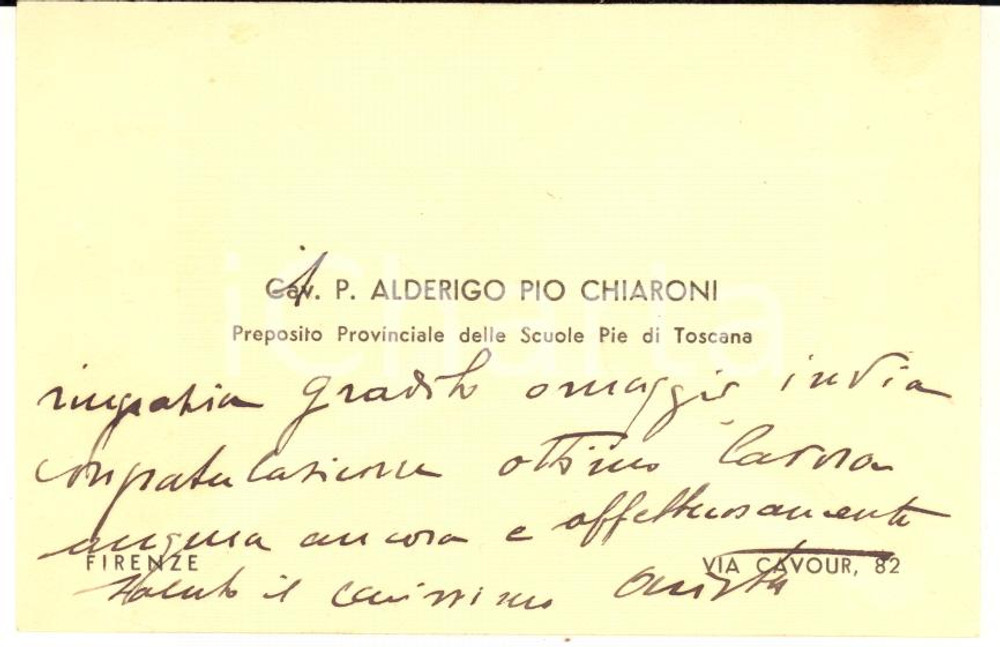 Cav. P. ALDERIGO PIO CHIARONI
Preposito Provinciale delle Scuole Pie di Toscana
ringrazia gradito omaggio invia
congratulazioni ottimo lavoro
augura ancora e affettuosamente
FIRENZE
VIA CAVOUR, 82
saluto il carissimo
iCharta